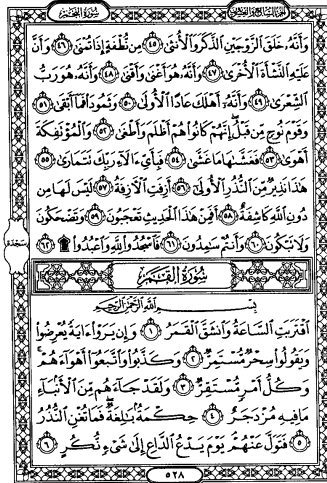 الجزء السابع والعشرون
سورة النجم
وَأَنَّهُۥ خَلَقَ ٱلزَّوْجَيْنِ ٱلذَّكَرَ وَٱلْأُنثَىٰ ٤٥ مِن نُّطْفَةٍ إِذَا تُمْنَىٰ ٤٦ وَأَنَّ
عَلَيْهِ ٱلنَّشْأَةَ ٱلْأُخْرَىٰ ٤٧ وَأَنَّهُۥ هُوَ أَغْنَىٰ وَأَقْنَىٰ ٤٨ وَأَنَّهُۥ هُوَ رَبُّ
ٱلشِّعْرَىٰ ٤٩ وَأَنَّهُۥٓ أَهْلَكَ عَادًا ٱلْأُولَىٰ ٥٠ وَثَمُودَا۟ فَمَآ أَبْقَىٰ ٥١
وَقَوْمَ نُوحٍ مِّن قَبْلُ إِنَّهُمْ كَانُوا۟ هُمْ أَظْلَمَ وَأَطْغَىٰ ٥٢ وَٱلْمُؤْتَفِكَةَ
أَهْوَىٰ ٥٣ فَغَشَّىٰهَا مَا غَشَّىٰ ٥٤ فَبِأَىِّ ءَالَآءِ رَبِّكَ تَتَمَارَىٰ ٥٥
هَٰذَا نَذِيرٌ مِّنَ ٱلنُّذُرِ ٱلْأُولَىٰٓ ٥٦ أَزِفَتِ ٱلْءَازِفَةُ ٥٧ لَيْسَ لَهَا مِن
دُونِ ٱللَّهِ كَاشِفَةٌ ٥٨ أَفَمِنْ هَٰذَا ٱلْحَدِيثِ تَعْجَبُونَ ٥٩ وَتَضْحَكُونَ
وَلَا تَبْكُونَ ٦٠ وَأَنتُمْ سَٰمِدُونَ ٦١ فَٱسْجُدُوا۟ لِلَّهِ وَٱعْبُدُوا۟ ۩ ٦٢
سجدة
سورة القمر
بِسْمِ ٱللَّهِ ٱلرَّحْمَٰنِ ٱلرَّحِيمِ
ٱقْتَرَبَتِ ٱلسَّاعَةُ وَٱنشَقَّ ٱلْقَمَرُ ١ وَإِن يَرَوْا۟ ءَايَةً يُعْرِضُوا۟
وَيَقُولُوا۟ سِحْرٌ مُّسْتَمِرٌّ ٢ وَكَذَّبُوا۟ وَٱتَّبَعُوٓا۟ أَهْوَآءَهُمْ
وَكُلُّ أَمْرٍ مُّسْتَقِرٌّ ٣ وَلَقَدْ جَآءَهُم مِّنَ ٱلْأَنۢبَآءِ
مَا فِيهِ مُزْدَجَرٌ ٤ حِكْمَةٌۢ بَٰلِغَةٌ فَمَا تُغْنِ ٱلنُّذُرُ
٥ فَتَوَلَّ عَنْهُمْ يَوْمَ يَدْعُ ٱلدَّاعِ إِلَىٰ شَىْءٍ نُّكُرٍ ٦
٥٢٨